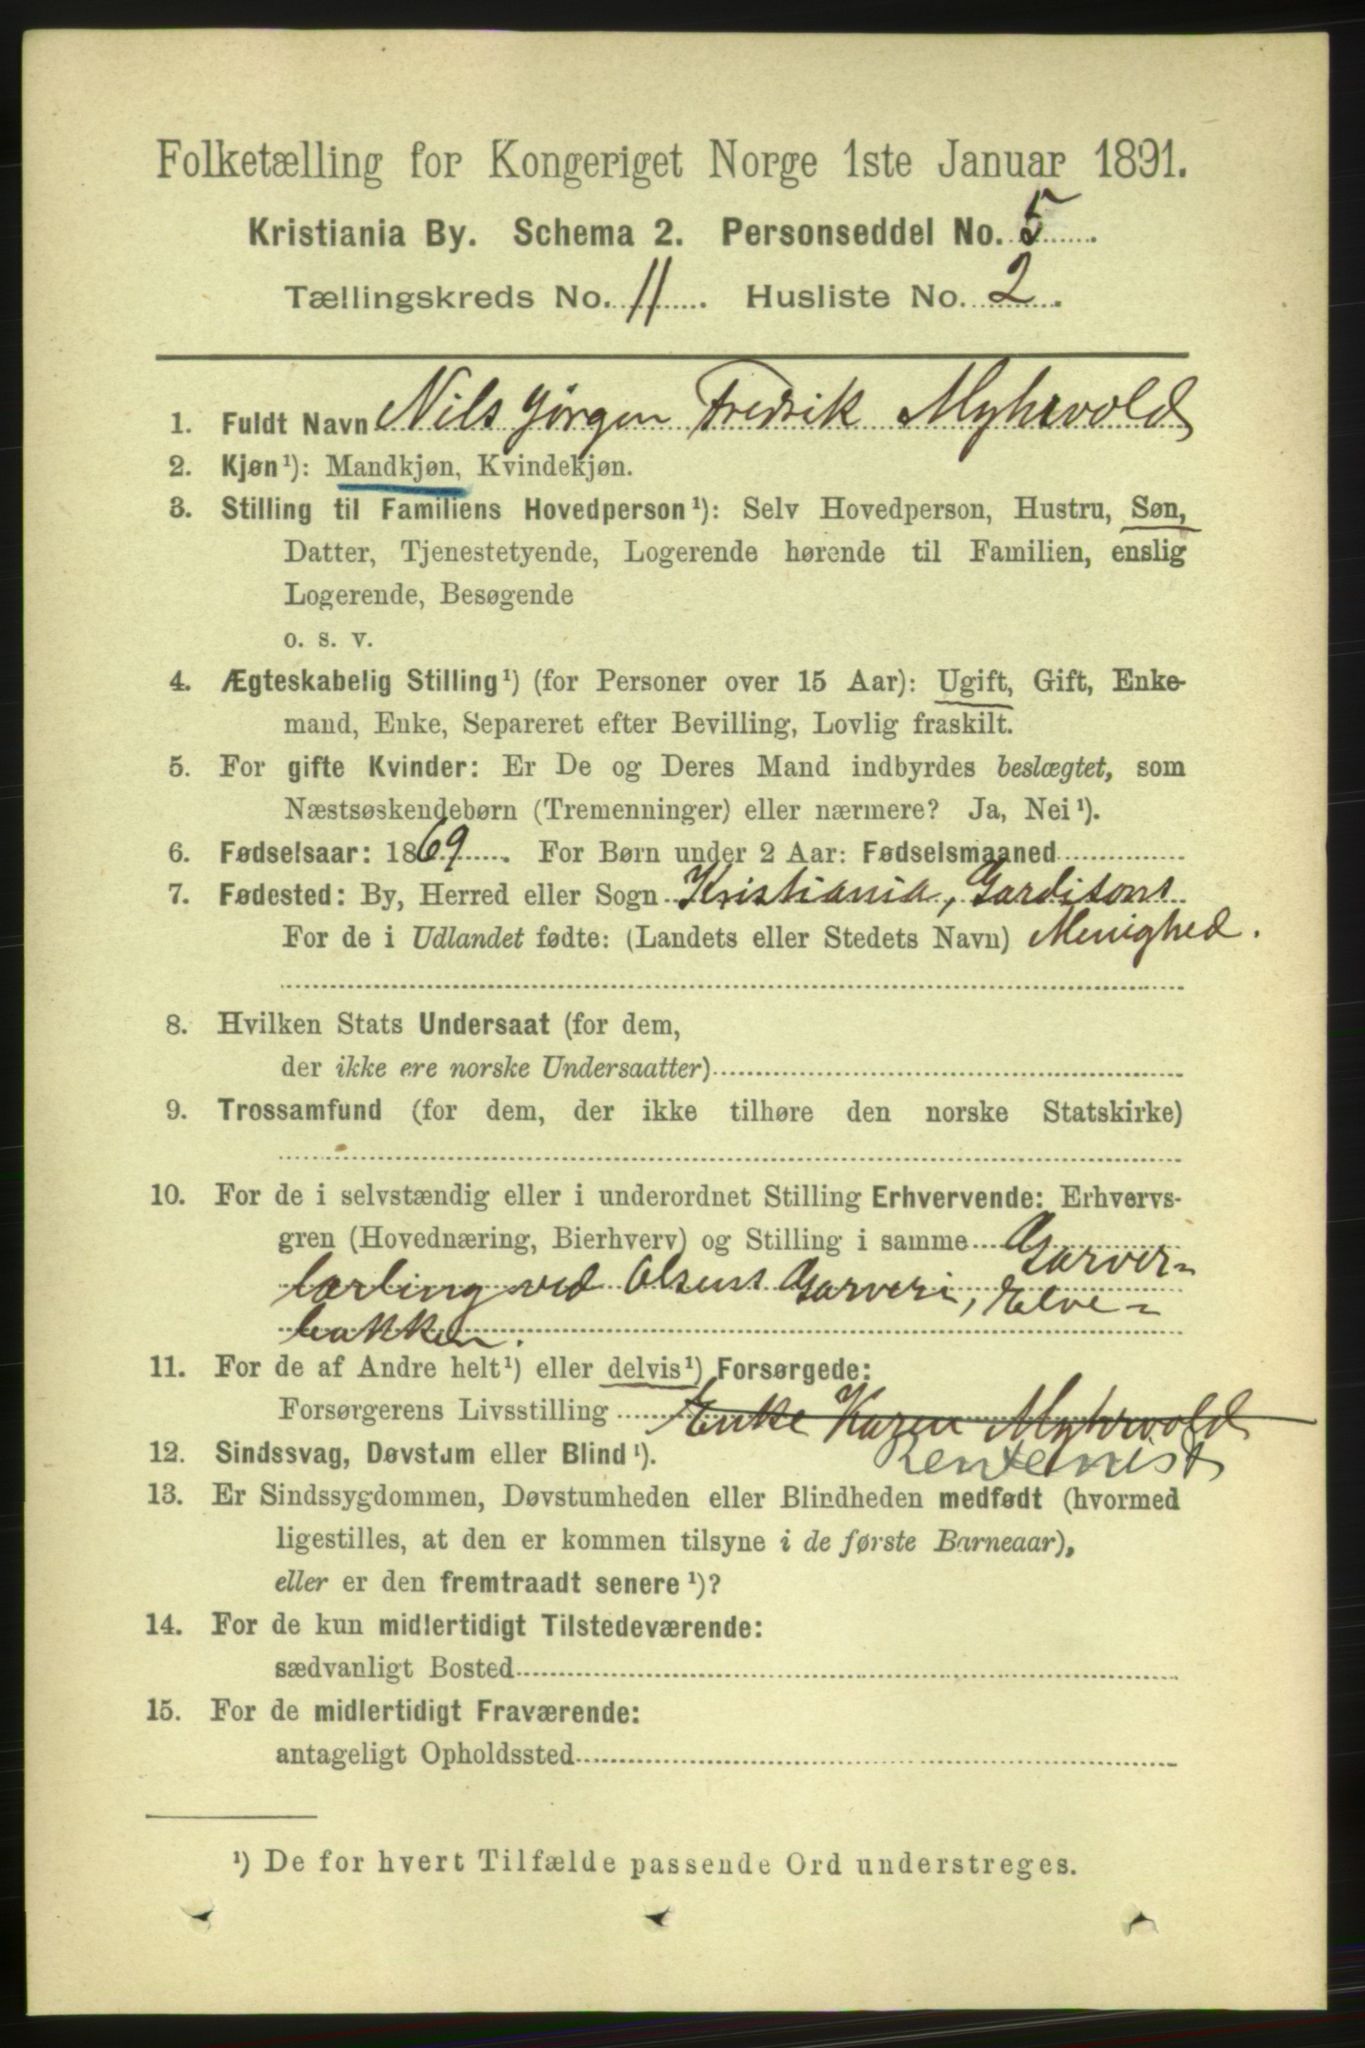 Folketælling for Kongeriget Norge 1ste Januar 1891.
Kristiania By. Schema 2. Personseddel No. 5
Tællingskreds No. 11. Husliste No. 2.
1. Fuldt Navn Nils Jørgen Fredrik Myhrvold
2. Kjøn¹): Mandkjøn, Kvindekjøn.
3. Stilling til Familiens Hovedperson¹): Selv Hovedperson, Hustru, Søn,
Datter, Tjenestetyende, Logerende hørende til Familien, enslig
Logerende, Besøgende
o. s. v.
4. Ægteskabelig Stilling¹) (for Personer over 15 Aar): Ugift, Gift, Enke-
mand, Enke, Separeret efter Bevilling, Lovlig fraskilt.
5. For gifte Kvinder: Er De og Deres Mand indbyrdes beslægtet, som
Næstsøskendebørn (Tremenninger) eller nærmere? Ja, Nei¹).
6. Fødselsaar: 1869. For Børn under 2 Aar: Fødselsmaaned
7. Fødested: By, Herred eller Sogn Kristiania, Gardisons
For de i Udlandet fødte: (Landets eller Stedets Navn) Menighed.
8. Hvilken Stats Undersaat (for dem,
der ikke ere norske Undersaatter)
9. Trossamfund (for dem, der ikke tilhøre den norske Statskirke)
10. For de i selvstændig eller i underordnet Stilling Erhvervende: Erhvervs-
gren (Hovednæring, Bierhverv) og Stilling i samme Garver-
lærling ved Olsens Garveri, Elve-
bakken.
11. For de af Andre helt¹) eller delvis¹) Forsørgede:
Forsørgerens Livsstilling Enke Karen Myhrvold
12. Sindssvag, Døvstum eller Blind¹). Rentenist
13. Er Sindssygdommen, Døvstumheden eller Blindheden medfødt (hvormed
ligestilles, at den er kommen tilsyne i de første Barneaar),
eller er den fremtraadt senere¹)?
14. For de kun midlertidigt Tilstedeværende:
sædvanligt Bosted
15. For de midlertidigt Fraværende:
antageligt Opholdssted
¹) De for hvert Tilfælde passende Ord understreges.